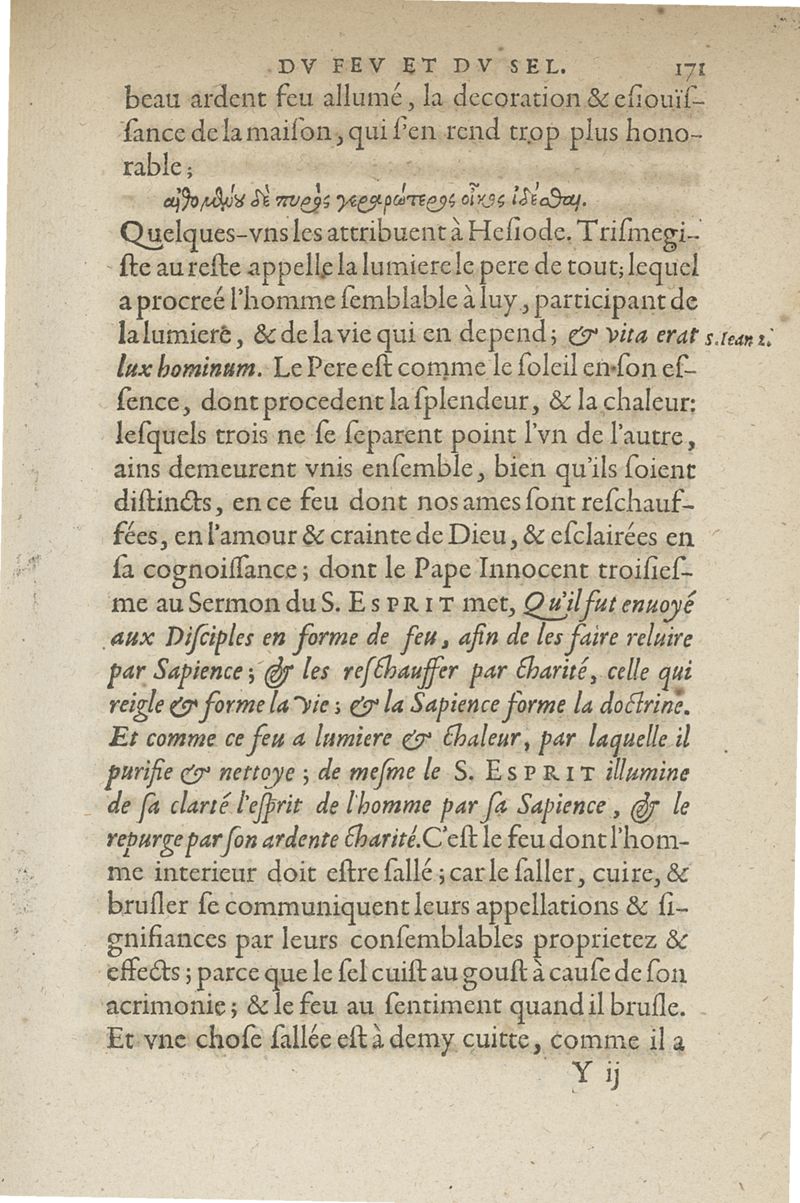 DV FEV ET DV SEL. 171
beau ardent feu allumé, la decoration & esiouïſ-
ſance de la maiſon, qui ſ'en rend trop plus hono-
rable;
αἰθομένου δὲ πυρὸς γεραρώτερος οἶκος ἰδέσθαι.
Quelques-vns les attribuent à Heſiode. Triſmegi-
ſte au reſte appelle la lumiere le pere de tout; lequel
a procreé l'homme ſemblable à luy, participant de
la lumiere, & de la vie qui en depend; & vita erat
S. Iean 1.
lux hominum. Le Pere eſt comme le ſoleil en ſon eſ-
ſence, dont procedent la ſplendeur, & la chaleur:
leſquels trois ne ſe ſeparent point l'vn de l'autre,
ains demeurent vnis enſemble, bien qu'ils ſoient
diſtincts, en ce feu dont nos ames ſont reſchauf-
fées, en l'amour & crainte de Dieu, & eſclairées en
ſa cognoiſſance; dont le Pape Innocent troiſieſ-
me au Sermon du S. ESPRIT met, Qu'il fut enuoyé
aux Diſciples en forme de feu, afin de les faire reluire
par Sapience; & les reſchauffer par Charité, celle qui
reigle & forme la vie; & la Sapience forme la doctrine.
Et comme ce feu a lumiere & chaleur, par laquelle il
purifie & nettoye; de meſme le S. ESPRIT illumine
de ſa clarté l'eſprit de l'homme par ſa Sapience, & le
repurge par ſon ardente Charité. C'eſt le feu dont l'hom-
me interieur doit eſtre ſallé; car le ſaller, cuire, &
bruſler ſe communiquent leurs appellations & ſi-
gnifiances par leurs conſemblables proprietez &
effects; parce que le ſel cuiſt au gouſt à cauſe de ſon
acrimonie; & le feu au ſentiment quand il bruſle.
Et vne choſe ſallée eſt à demy cuitte, comme il a
Y ij